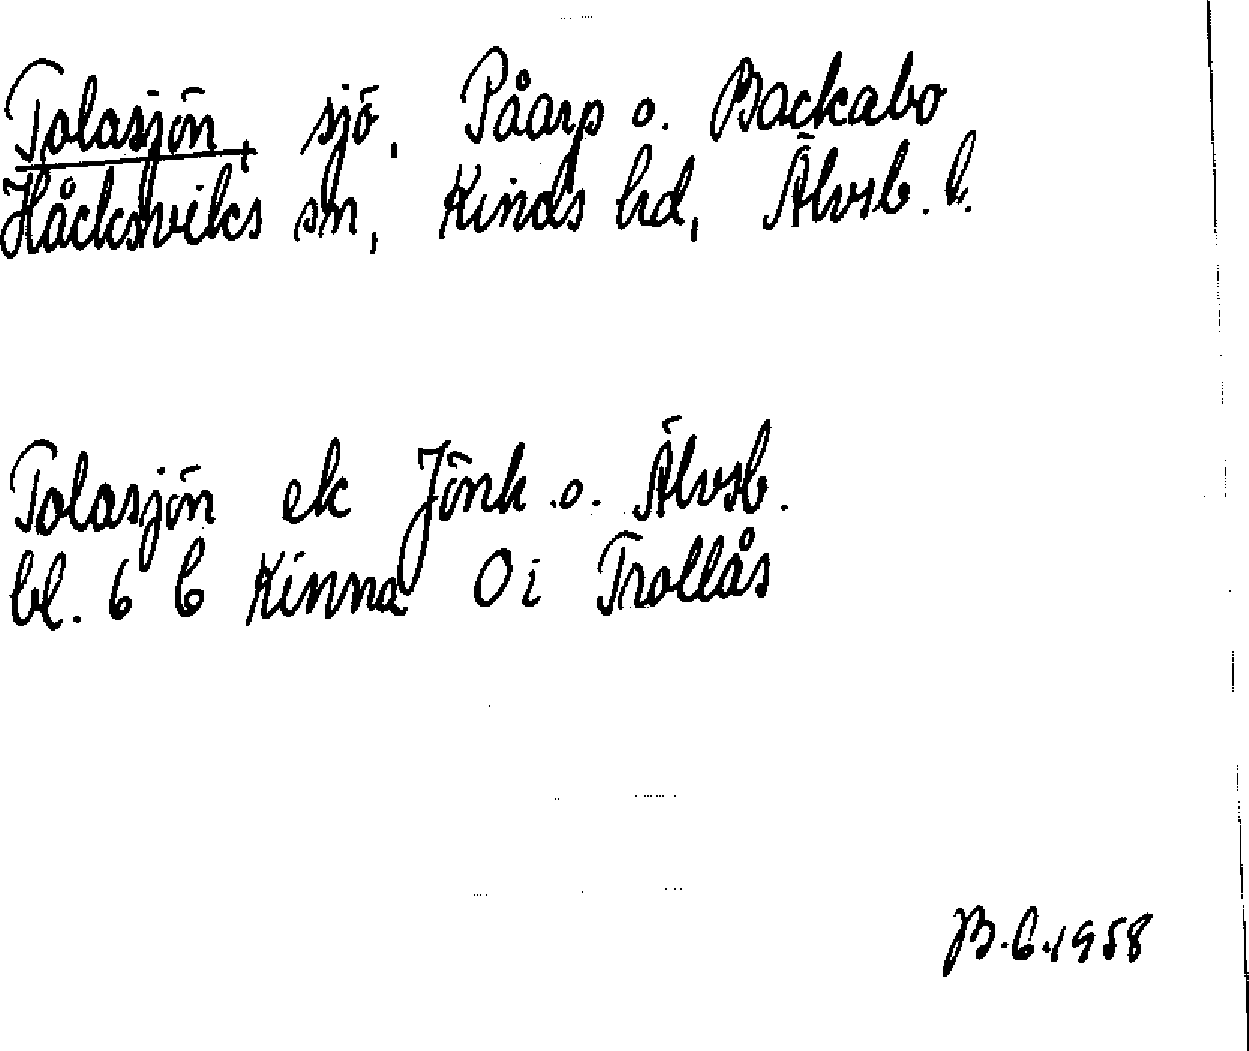 Tolasjön, sjö, Påarp o. Backabo
Håcksviks sn, Kinds hd, Älvsb. l.
Tolasjön ek Jönk. o. Älvsb.
bl. 6 C Kinna 0 i Trollås
B.C. 1958